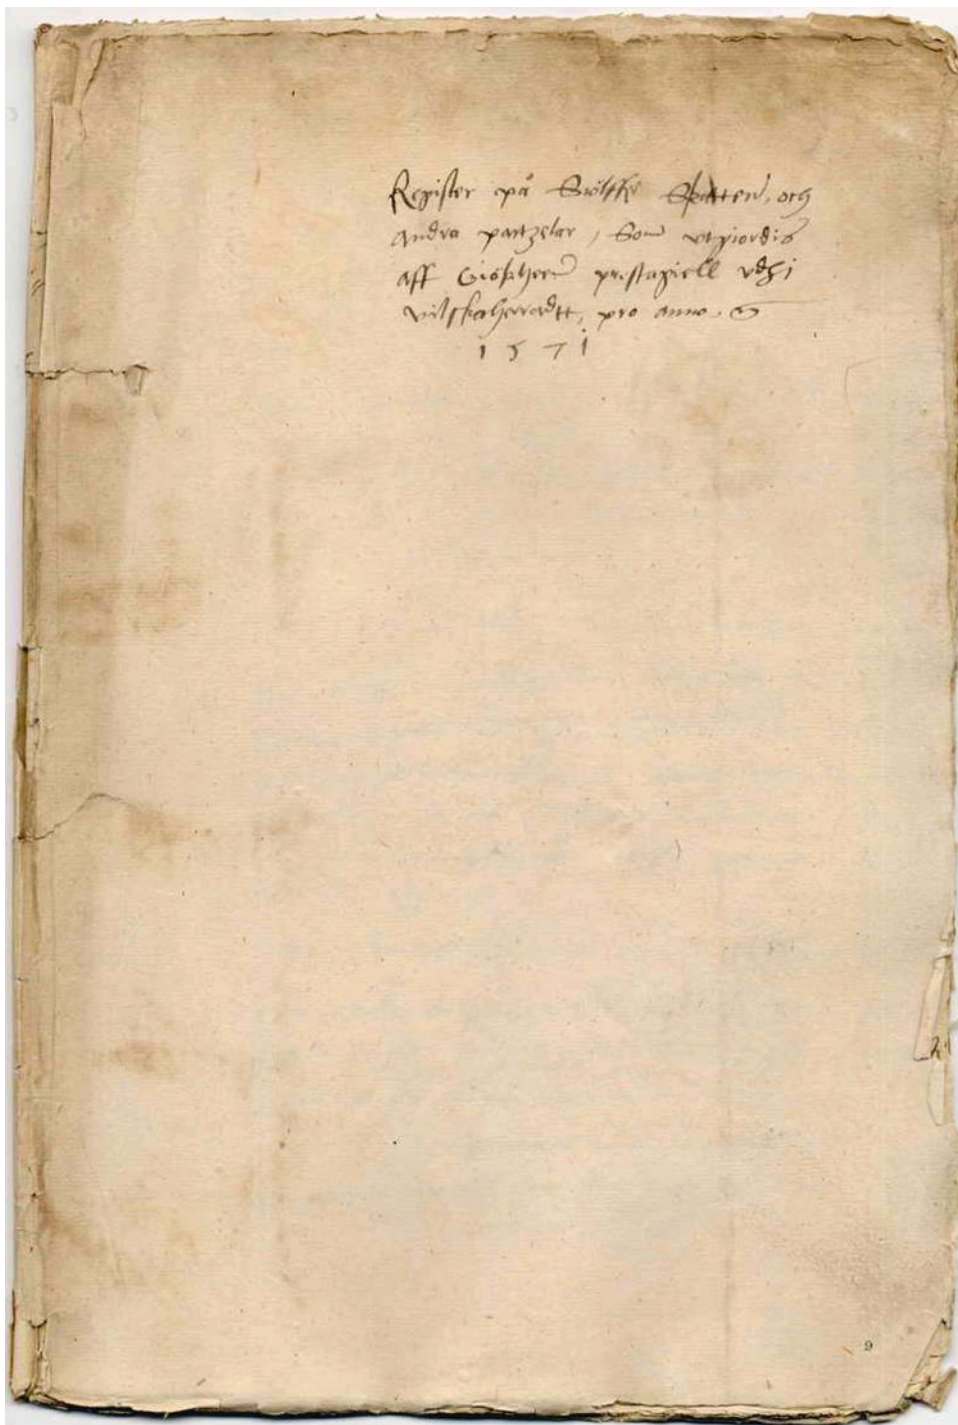 Register på Sölffz Skatten, och
Andra partzelar, Som vtgiordis
aff prestagiell vdhi
vilskeherradtt, pro anno.
1571
9